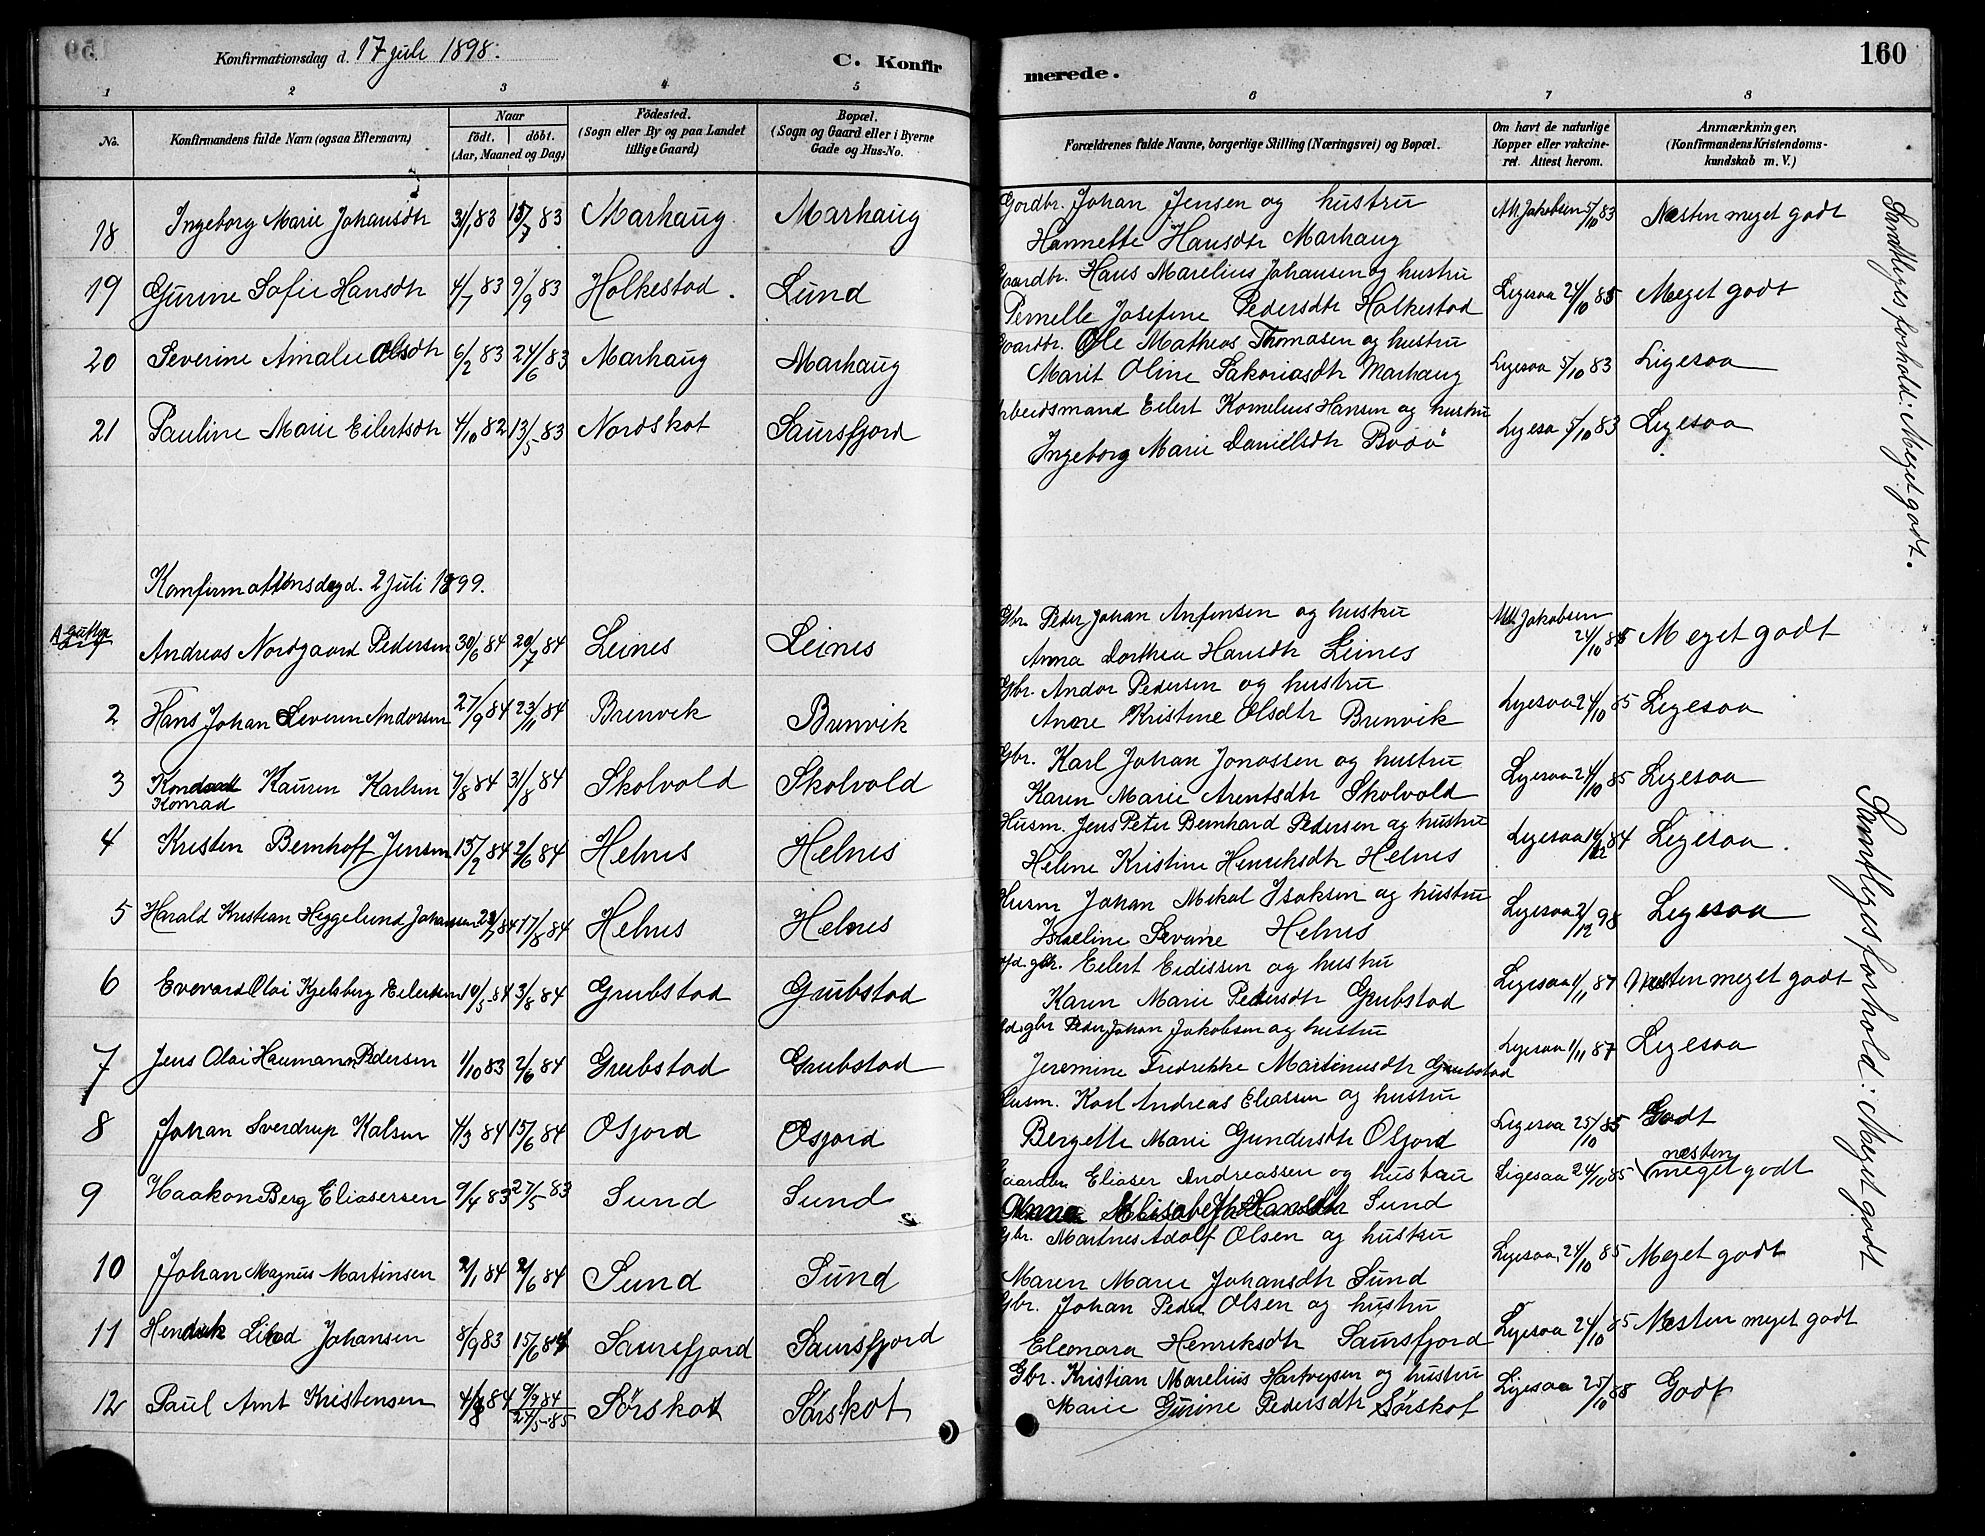 Konfirmationsdag d. 17 juli 1898.
C. Konfirmerede.
160
1 2 3 4 5 6 7 8
No.
Konfirmandens fulde Navn (ogsaa Efternavn)
Naar
födt. döbt.
(Aar, Maaned og Dag)
Födested.
(Sogn eller By og paa Landet
tillige Gaard)
Bopæl.
(Sogn og Gaard eller i Byerne
Gade og Hus-No.
Forældrenes fulde Navne, borgerlige Stilling (Næringsvei) og Bopæl.
Om havt de naturlige
Kopper eller vakcine-
ret. Attest herom.
Anmærkninger,
(Konfirmandens Kristendoms-
kundskab m. V.)
18 Ingeborg Marie Johansdtr 31/1 83 15/7 83 Marhaug Marhaug Gordbr. Johan Jensen og hustru
Hannette Hansdtr Marhaug
M Jakobsen 5/10 83 Næsten meget godt
19 Gurine Sofie Hansdtr 4/7 83 9/9 83 Holkestad. Lund Gaardbr. Hans Marelius Johansen og hustru
Pernelle Josefine Pedersdtr Holkestad
Ligesaa 24/10 85 Meget godt
20 Severine Amalie Olsdtr 6/2 83 24/6 83 Marhaug Marhaug Gaardbr. Ole Mathias Thomasen og hustru
Marit Oline Sakariasdtr Marhaug
Ligesaa 5/10 83 Ligesaa
21 Pauline Marie Eilertsdtr 4/10 82 13/5 83 Nordskot Saursfjord Arbeidsmand Eilert Kornelius Hansen og hustru
Ingeborg Marie Danielsdtr Bodö
Ligesa 5/10 83 Ligesaa
Samtliges forhold: Meget godt.
Komfirmationsdag d. 2 Juli 1899.
A Gutter
Andreas Nordgaard Pedersen 30/6 84 20/7 84 Leines Leines Gbr. Peder Johan Anfensen og hustru
Anna Dorthea Hansdtr Leines
M Jakobsen
24/10 85 Meget godt
2 Hans Johan Severin Andorsen 27/9 84 23/11 84 Brenvik Brenvik Gbr. Andor Pedersen og hustru
Anne Kristine Olsdtr Brenvik
Ligesaa 24/10 85 Ligesaa
3 Kauren Karlsen 7/8 84 31/8 84 Skolvold Skolvold
Konrad
Gbr. Karl Johan Jonassen og hustru
Karen Marie Arentsdtr Skolvold
Ligesaa 24/10 85 Ligesaa
4 Kristen Bernhoff Jensen 15/2 84 2/6 84 Helnes Helnes Husm. Jens Peter Bernhard Pedersen og hustru
Helene Kristine Henriksdtr Helnes
Ligesaa 10/12 84 Ligesaa.
5 Harald Kristian Heggelund Johansen 84 17/8 84 Helnes Helnes Husm Johan Mekal Isaksen og hustru
Israeline Helnes
Ligesaa 2/12 98 Ligesaa
6 Everard Olai Kjelsberg Eilertsen 10/5 84 3/8 84 Grubstad Grubstad gbr. Eilert Eidissen og hustru
Karen Marie Pedersdtr Grubstad
Ligesaa 1/11 87 Næsten meget godt
7 Jens Olai Haumann Pedersen 1/10 83 2/6 84 Grubstad Grubstad gbr Peder Johan Jakobsen og hustru
Jeremine Fredrekke Martinusdtr Grubstad
Ligesaa 1/11 87 Ligesaa
8 Johan Sverdrup Kalsen 4/3 84 15/6 84 Osjord Osjord Husm. Karl Andreas Eliassen og hustru
Bergette Marie Gundersdtr Osjord
Ligesaa 25/10 85 Godt
9 Haakon Berg Eliasersen 9/4 83 27/5 83 Sund Sund Gaardbr. Eliaser Andreassen og hustru
Anna Elisabeth Hansdtr Sund
Ligesaa 24/10 85 næsten
meget godt
10 Johan Magnus Martinsen 2/1 84 2/6 84 Sund Sund Gbr. Martines Adolf Olsen og hustru
Maren Marie Johansdtr Sund
Ligesaa 24/10 85 Meget godt
11 Hendrik Johansen 8/9 83 15/6 84 Saursfjord Saursfjord Gbr. Johan Peder Olsen og hustru
Eleonora Henriksdtr Saursfjord
Ligesaa 24/10 85 Næsten meget godt
12 Paul Arnt Kristensen 4/8 84 9/9 84
24/5-85 Sörskot Sörskot Gbr. Kristian Marelius Hartvigsen og hustru
Marie Gurine Pedersdtr Sörskot
Ligesaa 25/10 88 Godt
Samtliges forhold: Meget godt